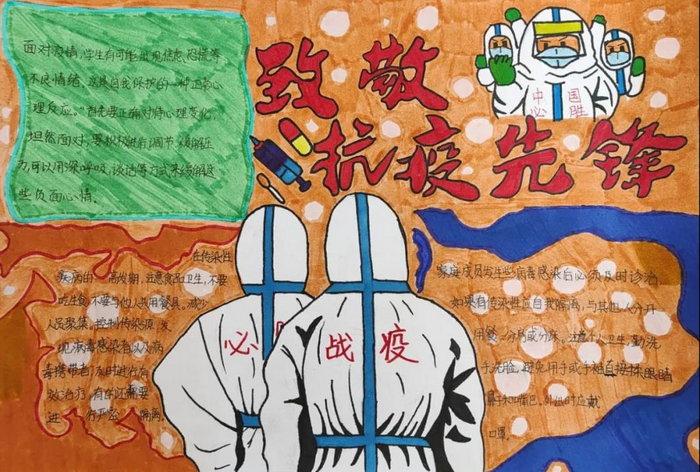 致敬
抗疫先锋
中国
必胜
面对疫情,学生有可能出现焦虑、恐慌等
不良情绪,这是自我保护的一种正常心
理反应。首先要正确对待心理变化,
坦然面对,要积极进行调节,缓解压
力,可以用深呼吸,谈话等方式来缓解这
些负面心情。
在传染性
疾病的高发期,注意食品卫生,不要
吃生食,不要与他人共用餐具。减少
人员聚集。控制传染源,发
现病毒感染者以及病
毒携带者,及时进行有
效治疗,有的还需要
进行严密隔离。
必
战疫
家庭成员发生些病毒感染后必须及时诊治
如果有传染性应自我隔离,与其他人分开
用餐、分房或分床。注意个人卫生,勤洗
手洗脸,避免用手或手帕直接抹眼睛
鼻子和嘴巴。外出时应戴
口罩。